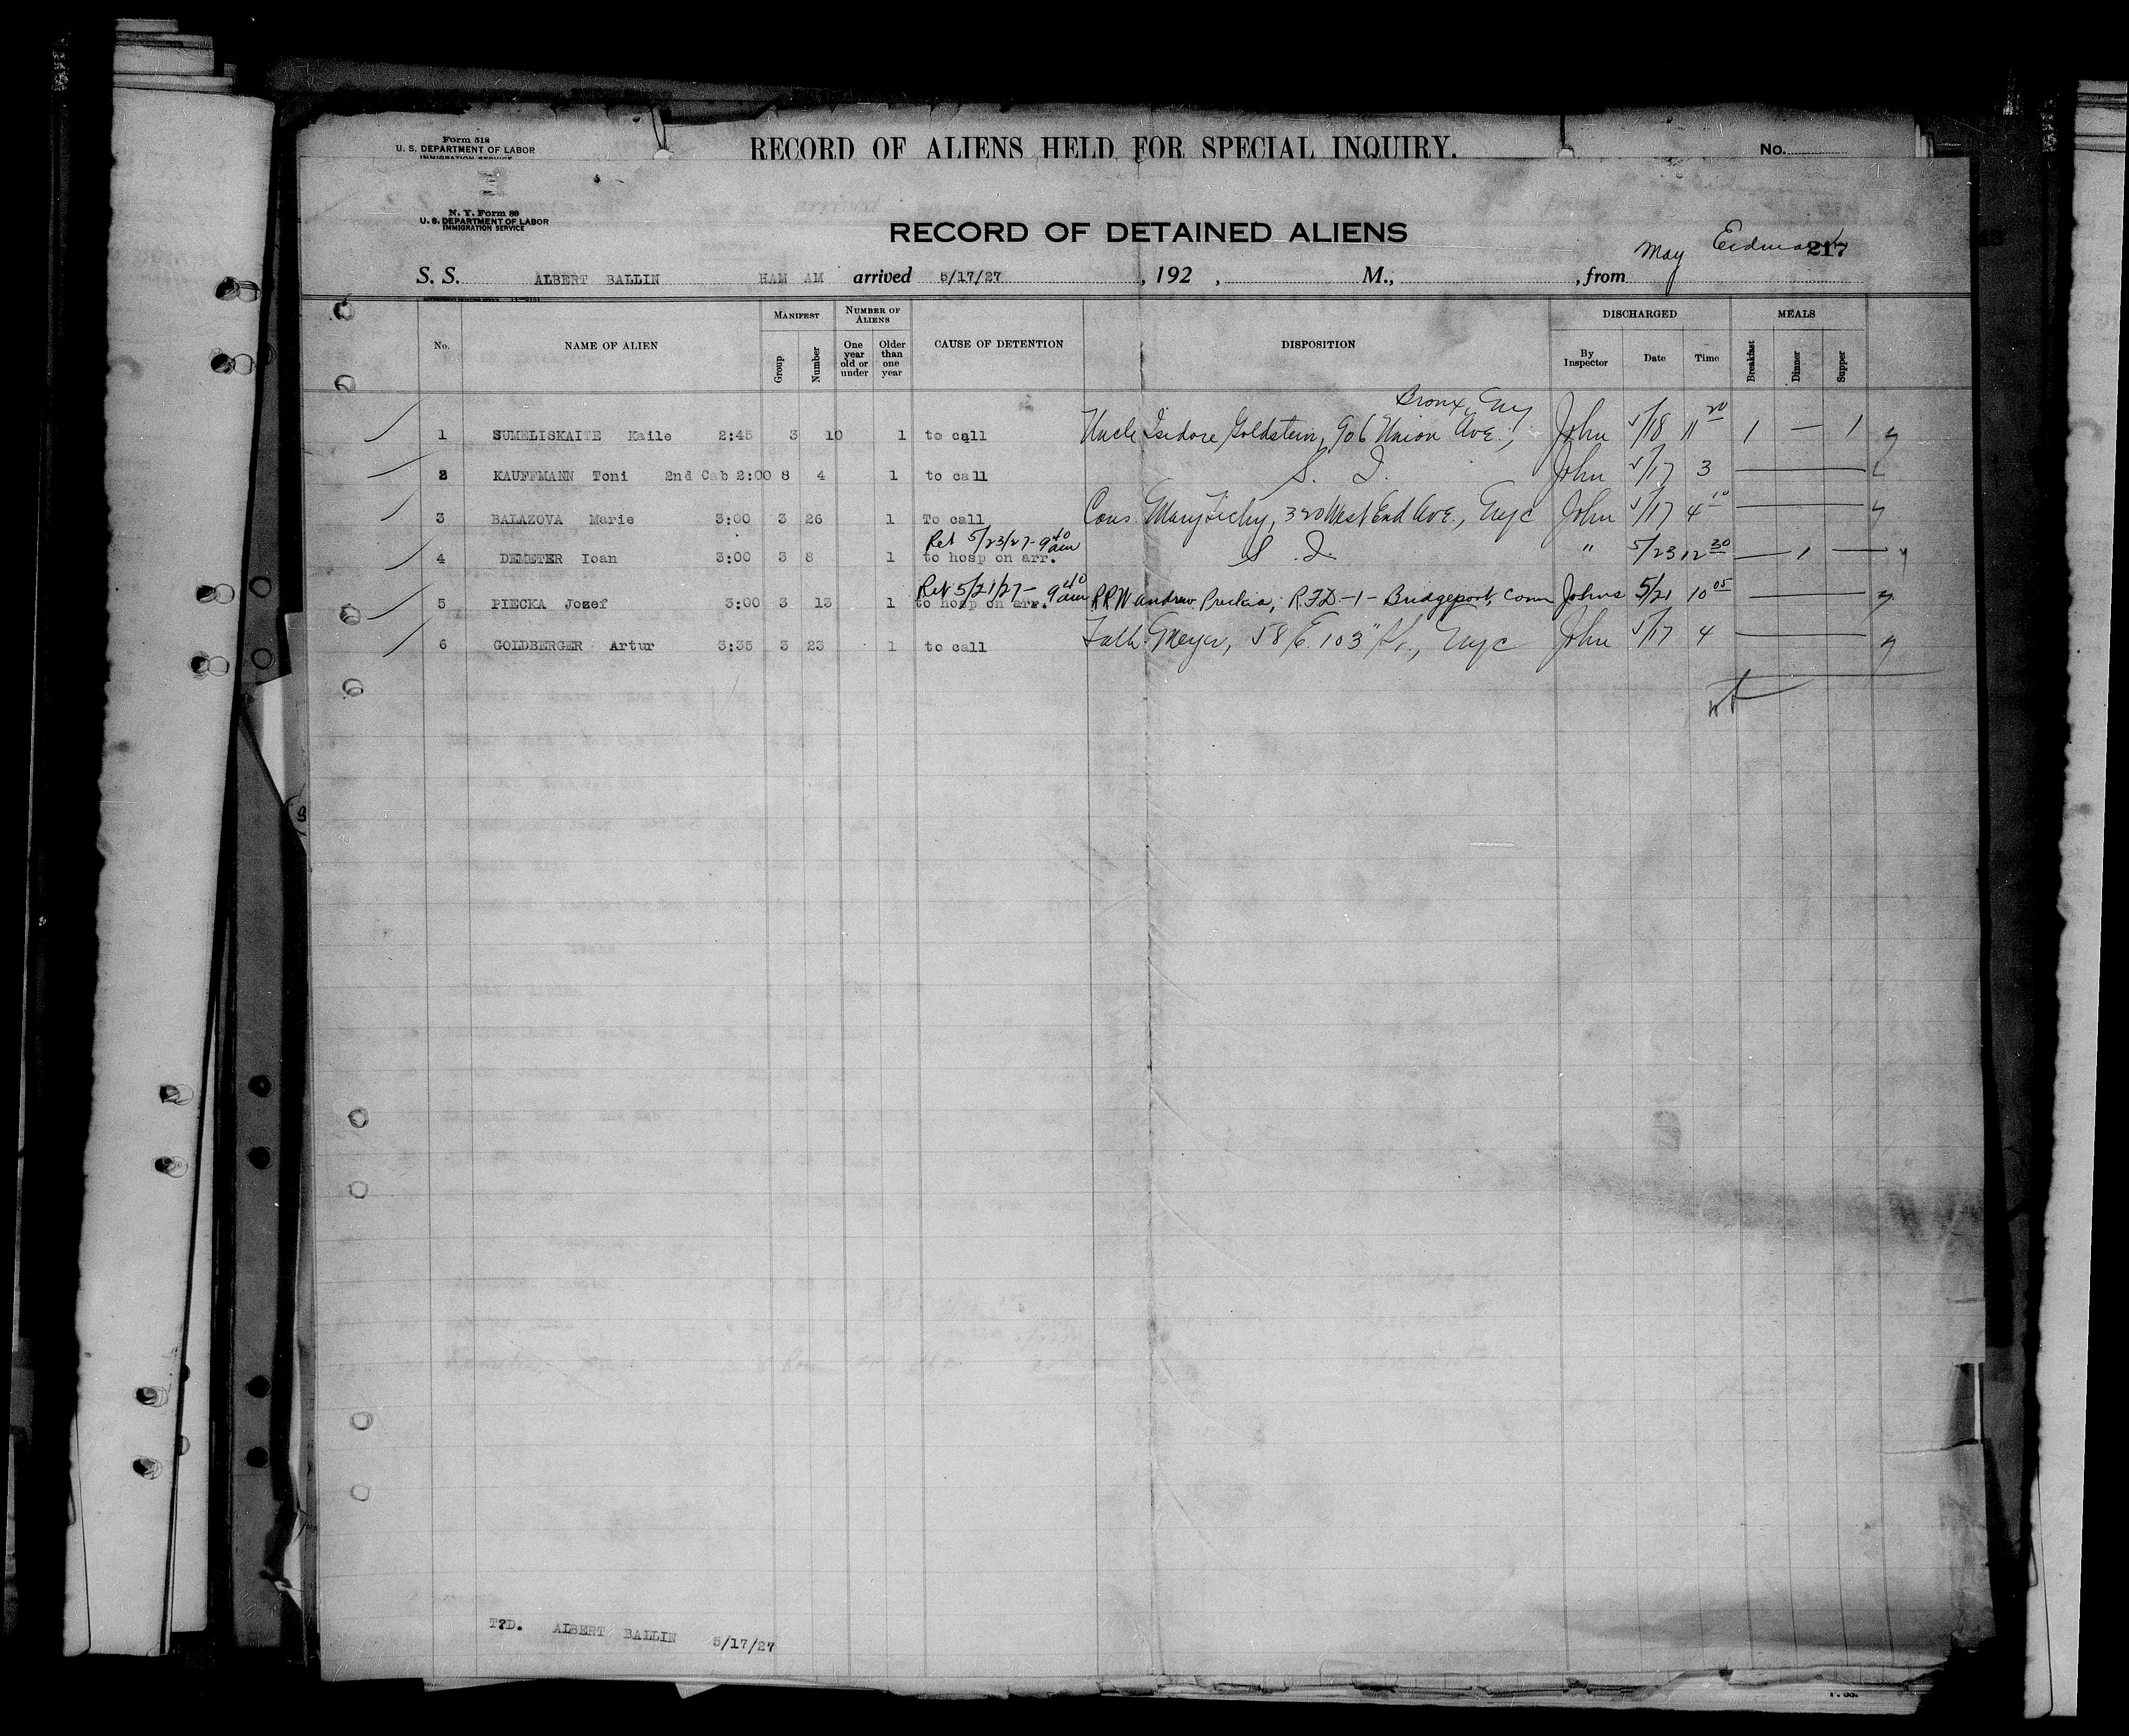 Form 518
U. S. DEPARTMENT OF LABOR
IMMIGRATION SERVICE
RECORD OF ALIENS HELD FOR SPECIAL INQUIRY.
No.
N. Y. Form 89
U. S. DEPARTMENT OF LABOR
IMMIGRATION SERVICE
RECORD OF DETAINED ALIENS
May 217
S. S. ALBERT BALLIN HAM AM arrived 5/17/27 , 192 , M., , from
No. NAME OF ALIEN MANIFEST Group Number NUMBER OF ALIENS One year old or under Older than one year CAUSE OF DETENTION DISPOSITION DISCHARGED By Inspector Date Time MEALS Breakfast Dinner Supper
Bronx, NY
1 SUMELISKAITE Kaile 2:45 3 10 1 to call Uncle Isidore Goldstein, 906 Union Ave., John 5/18 11 20 1 — 1
2 KAUFFMANN Toni 2nd Cab 2:00 8 4 1 to call S. I. John 5/17 3
3 BALAZOVA Marie 3:00 3 26 1 To call Cous. Mary Tichy, 320 West End Ave., NYC John 5/17 4 10
Ret 5/23/27 - 9 40 am
4 DEMETER Ioan 3:00 3 8 1 to hosp on arr. S. I. " 5/23 12 30 — 1 —
Ret 5/21/27 - 9 40 am
5 PIECKA Jozef 3:00 3 13 1 to hosp on arr. Andrew R.F.D-1- Bridgeport, Conn Johns 5/21 10 05
6 GOLDBERGER Artur 3:35 3 23 1 to call Fath. Meyer, 58 E. 103" St., NYC John 5/17 4
T?D. ALBERT BALLIN 5/17/27